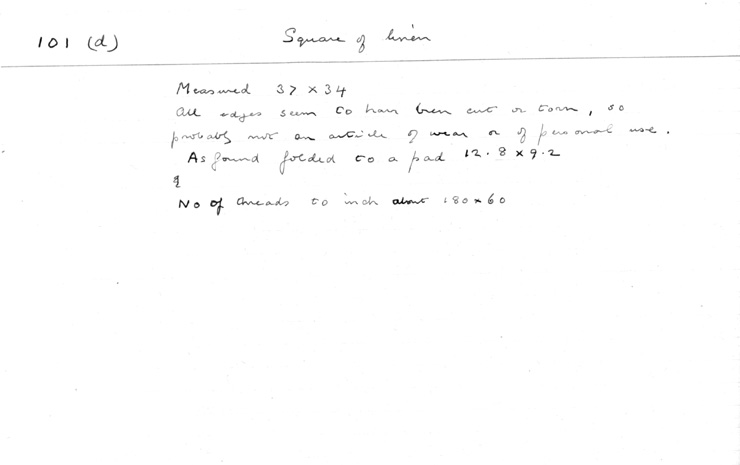 101 (d)
Square of linen
Measured 37 × 34
All edges seem to have been cut or torn, so
probably not an article of wear or of personal use.
As found folded to a pad 12.8 × 9.2
No of threads to inch about 180 × 60